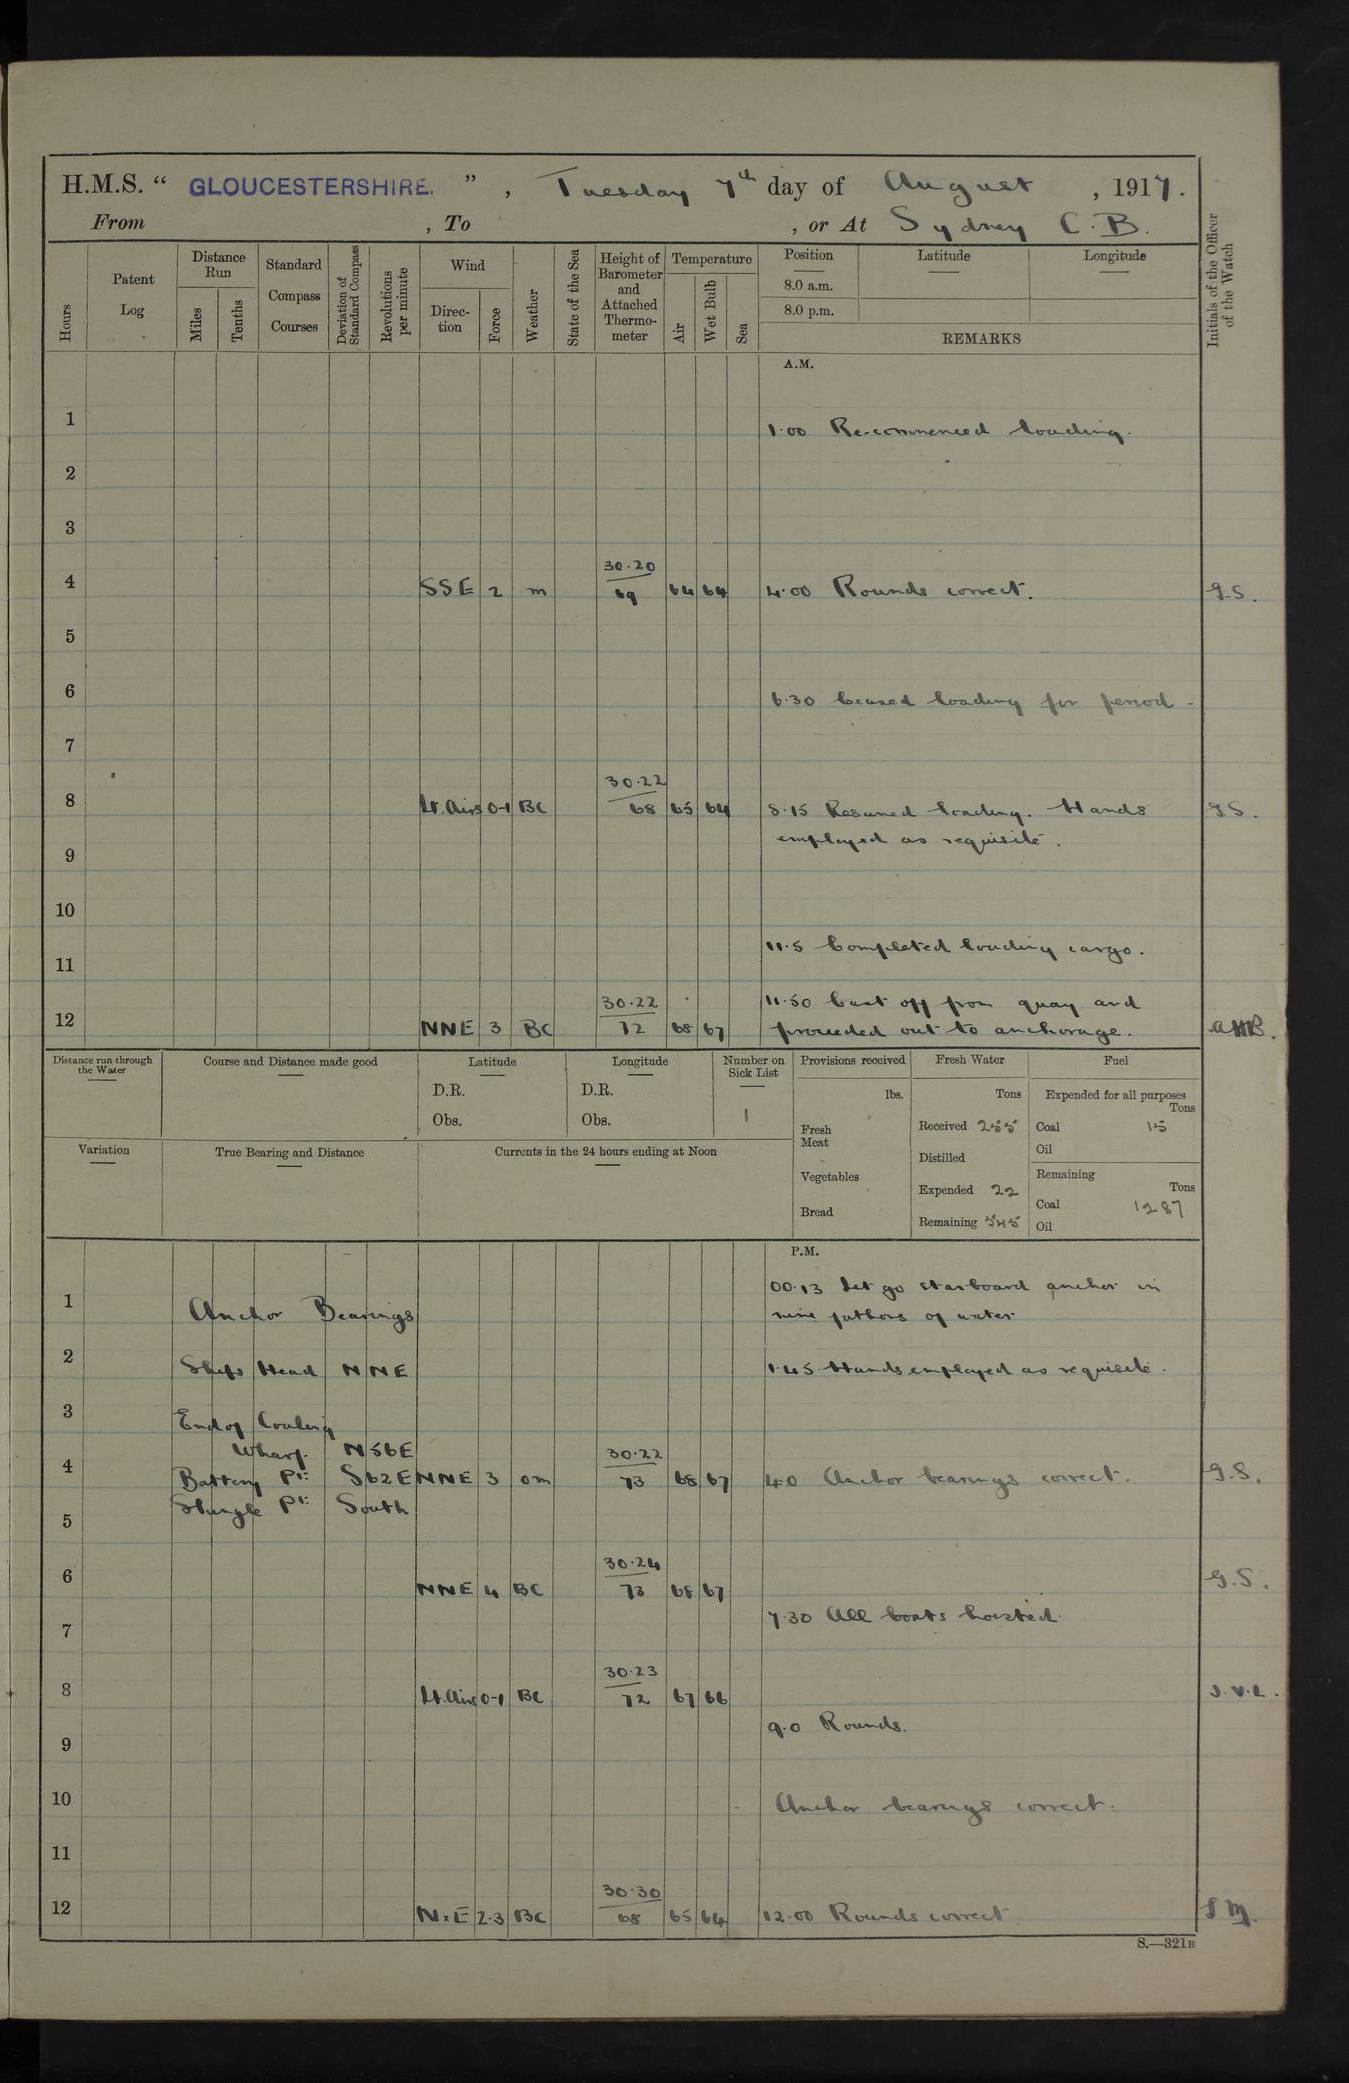 H.M.S. “ GLOUCESTERSHIRE. ” , Tuesday 7th day of August , 1917.
From , To , or At Sydney C.B.
Hours
Patent Log
Distance Run
Miles
Tenths
Standard Compass Courses
Deviation of Standard Compass
Revolutions per minute
Wind
Direction
Force
Weather
State of the Sea
Height of Barometer and Attached Thermometer
Temperature
Air
Wet Bulb
Sea
Position
8.0 a.m.
8.0 p.m.
Latitude
Longitude
REMARKS
Initials of the Officer of the Watch
A.M.
1 1.00 Re-commenced loading.
2
3
30.20
4 SSE 2 m 69 64 64 4.00 Rounds correct. G.S.
5
6 6.30 Ceased loading for period.
7
30.22
8 Lt.Airs 0-1 BC 68 65 64 8.15 Resumed loading. Hands G.S.
employed as requisite.
9
10
11.5 Completed loading cargo.
11
30.22 11.50 Cast off from quay and
12 NNE 3 BC 72 68 67 proceeded out to anchorage. AHB.
Distance run through the Water
Course and Distance made good
Latitude
D.R.
Obs.
Longitude
D.R.
Obs.
Number on Sick List
1
Provisions received
lbs.
Fresh Meat
Vegetables
Bread
Fresh Water
Tons
Received 255
Distilled
Expended 22
Remaining 545
Fuel
Expended for all purposes
Tons
Coal 15
Oil
Remaining
Tons
Coal 1287
Oil
Variation
True Bearing and Distance
Currents in the 24 hours ending at Noon
P.M.
00.13 Let go starboard anchor in
1 Anchor Bearings nine fathoms of water
2 Ships Head NNE 1.45 Hands employed as requisite.
3 End of Coaling
Wharf. N56E 30.22
4 Battery Pt: S62E NNE 3 om 73 68 67 4.0 Anchor bearings correct. G.S.
Shingle Pt: South
5
30.24
6 NNE 4 BC 73 68 67 G.S.
7.30 All boats hoisted.
7
30.23
8 Lt.Airs 0-1 BC 72 67 66 J.V.L.
9.0 Rounds.
9
10 Anchor bearings correct.
11
30.30
12 N.E 2.3 BC 68 65 64 12.00 Rounds correct
S.—321B